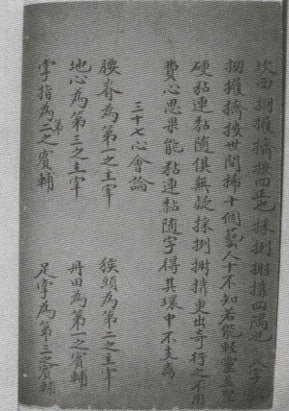 掤攦擠按四正也採挒肘靠四隅也 八字歌
掤攦擠按世間稀十個藝人十不知若能輕靈並堅
硬黏連黏隨俱無疑採挒肘靠更出奇行之不用
費心思果能黏連黏隨字得其環中不支離
三十七心會論
腰脊為第一之主宰 猴頭為第二之主宰
地心為第三之主宰 丹田為第一之賓輔
掌指為第二之賓輔 足掌為第三之賓輔